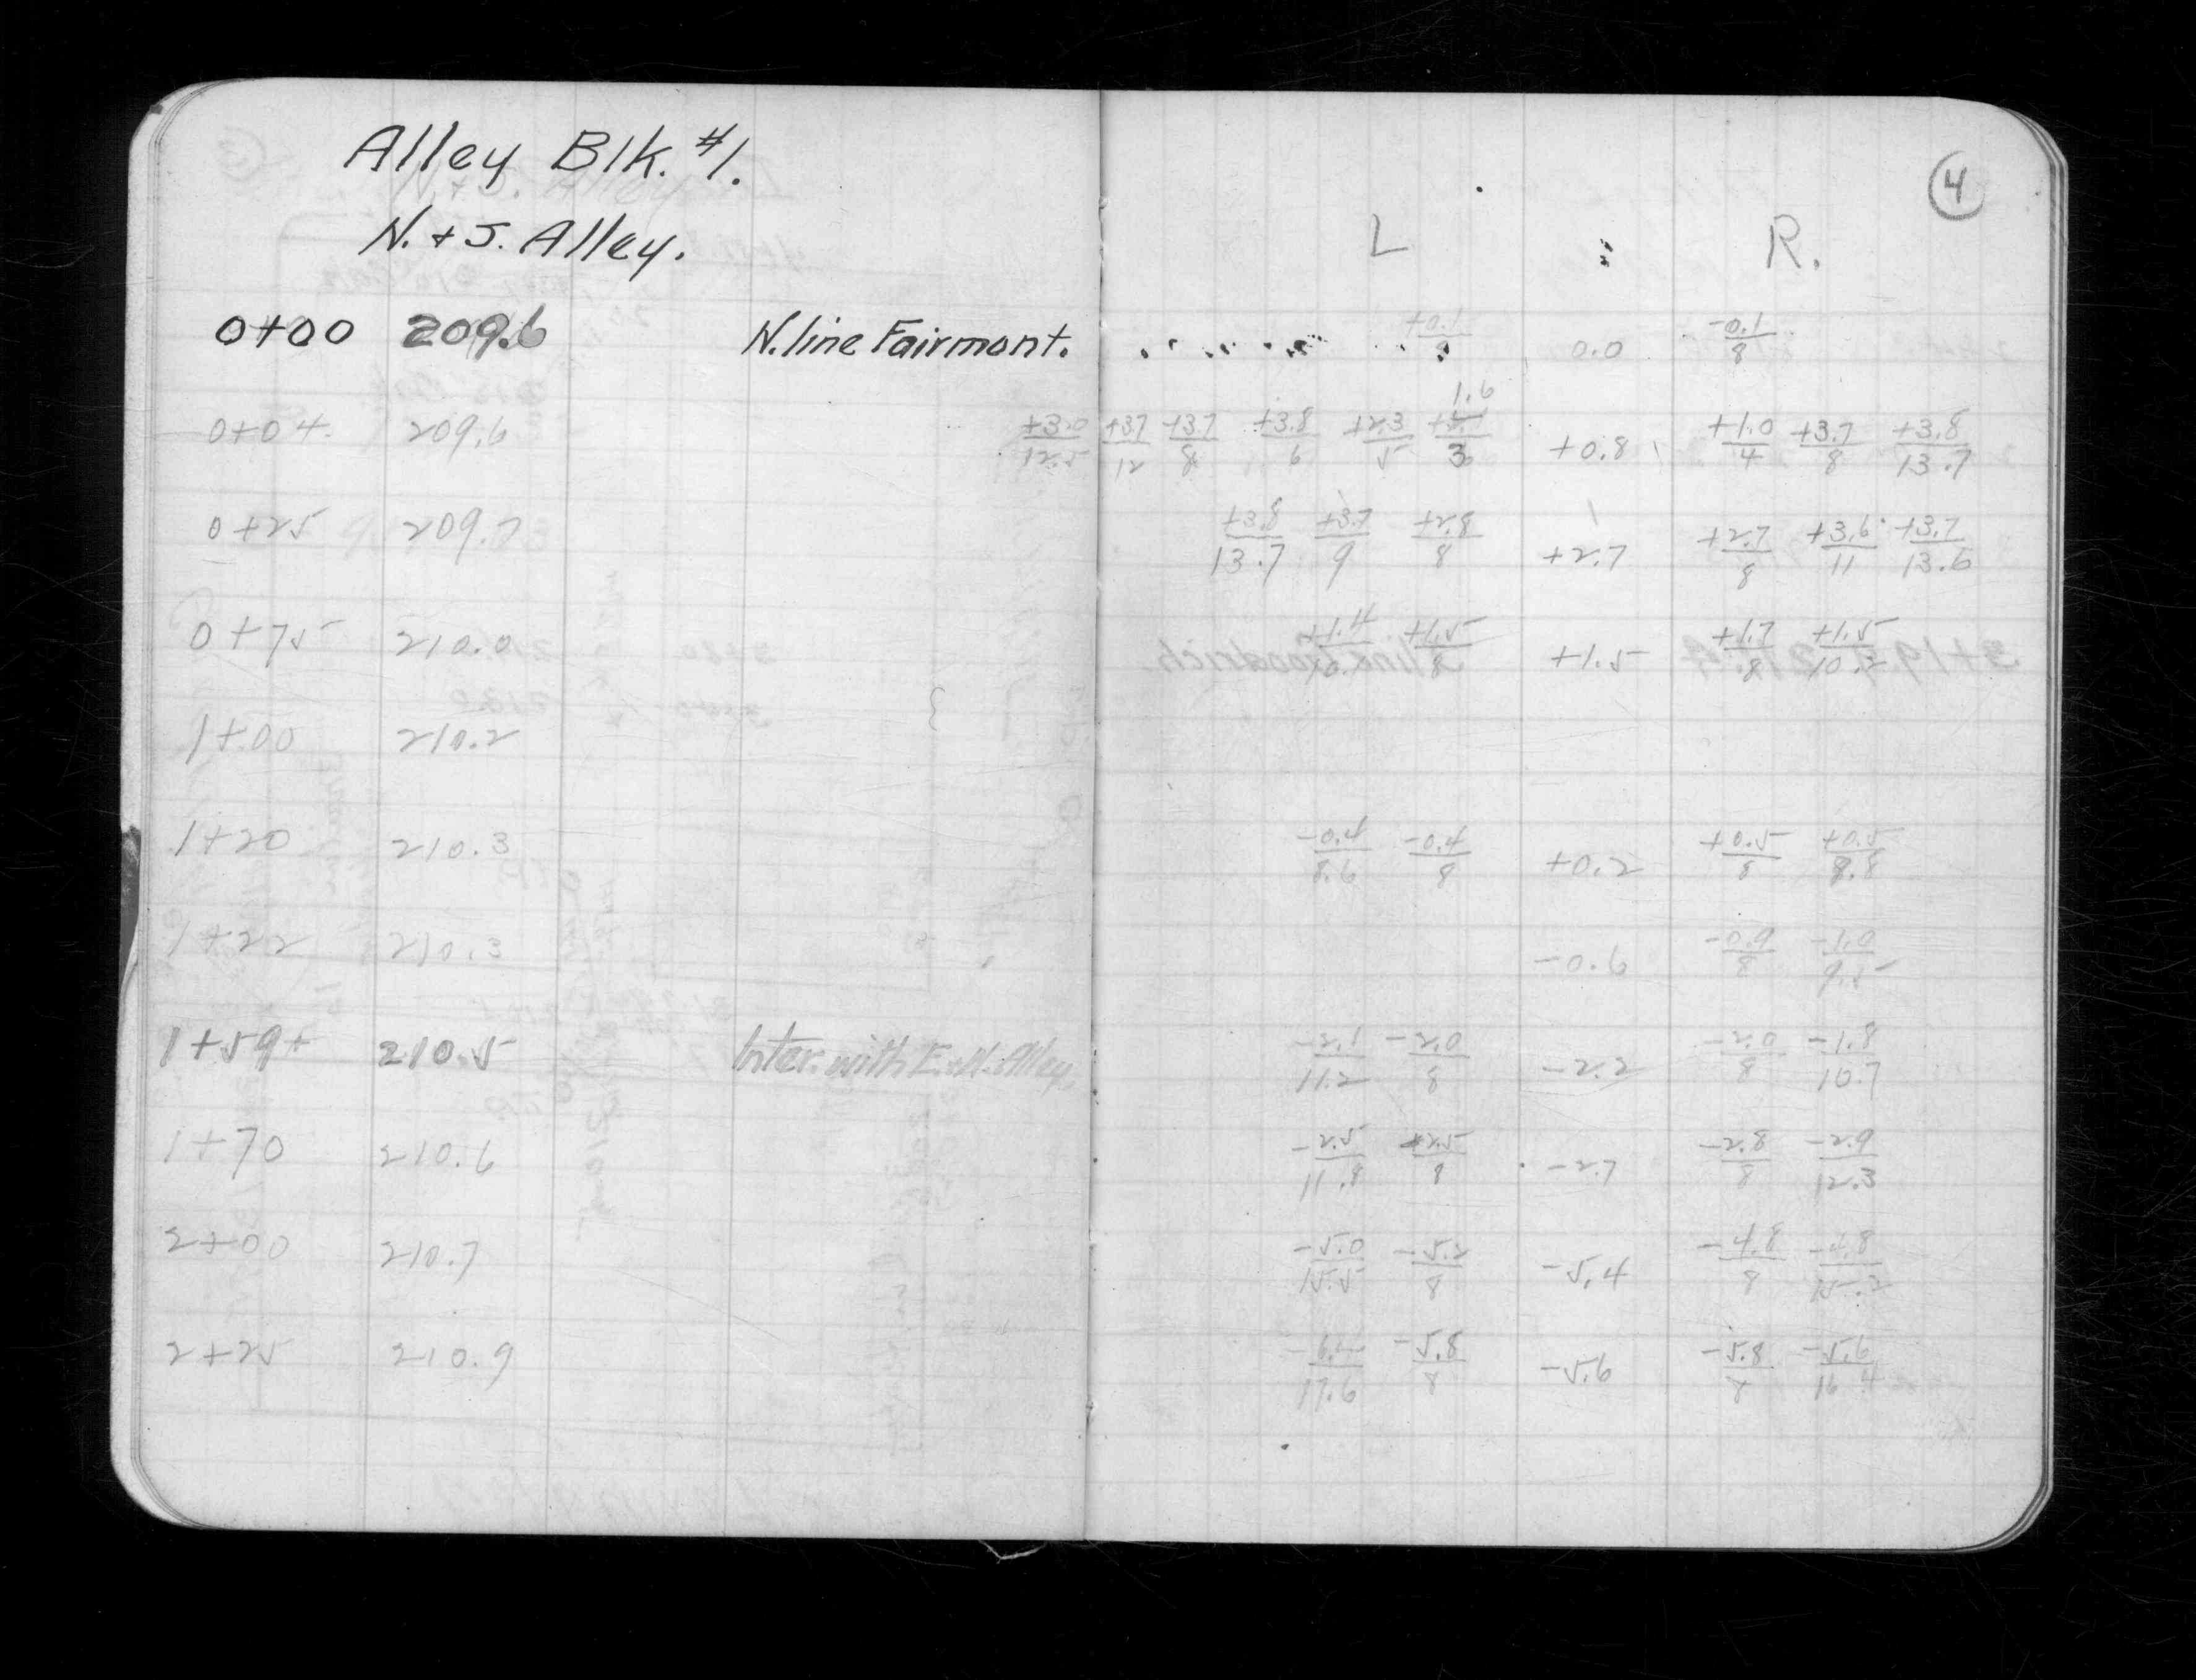 Alley Blk. #1.
N. + S. Alley.
4
L
R.
0+00 209.6 N. line Fairmont. +0.1/8 0.0 -0.1/8
1.6
0+04. 209.6 +3.0/12.5 +3.7/12 +3.7/8 +3.8/6 +2.3/5 3 +0.8 +1.0/4 +3.7/8 +3.8/13.7
0+25 209.7 +3.8/13.7 +3.7/9 +2.8/8 +2.7 +2.7/8 +3.6/11 +3.7/13.6
0+75 210.0 +1.4 +1.5/8 +1.5 +1.7/8 +1.5/10.2
1+00 210.2
1+20 210.3 -0.4/8.6 -0.4/8 +0.2 +0.5/8 +0.5/8.8
1+22 210.3 -0.6 -0.9/8 -1.0/9.5
1+59+ 210.5 Inter. with E.+W. Alley. -2.1/11.2 -2.0/8 -2.2 -2.0/8 -1.8/10.7
1+70 210.6 -2.5/11.8 -2.5/8 -2.7 -2.8/8 -2.9/12.3
2+00 210.7 -5.0/15.5 -5.2/8 -5.4 -4.8/8 -4.8/15.2
2+25 210.9 17.6 -5.8/8 -5.6 -5.8/8 -5.6/16.4